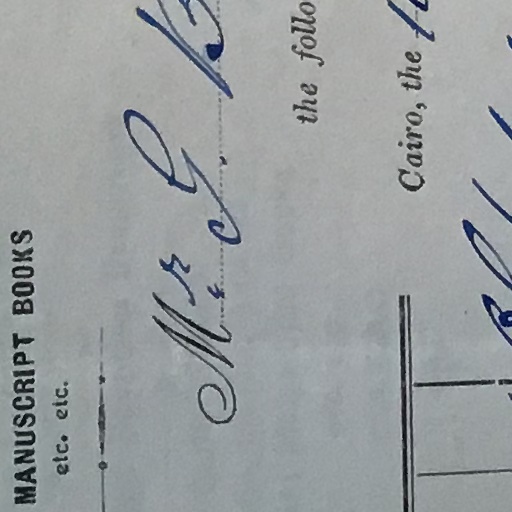 MANUSCRIPT BOOKS
etc. etc.
Mr. G.
the
Cairo, the